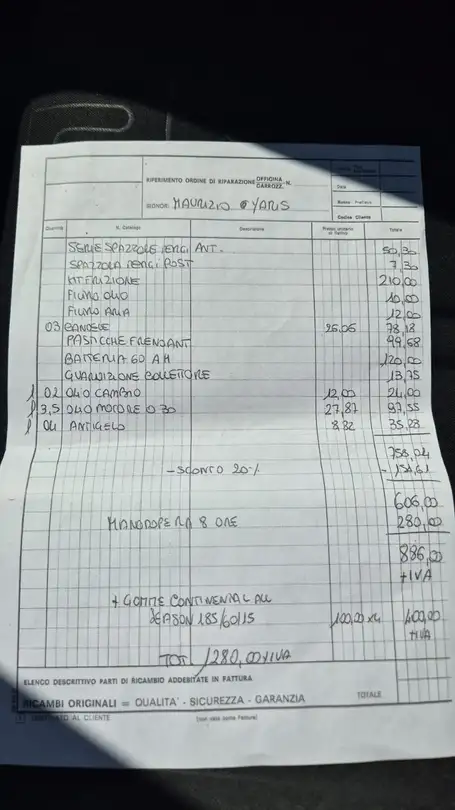 RIFERIMENTO ORDINE DI RIPARAZIONE OFFICINA CARROZZ. N.
Data
SIGNOR: MAURIZIO YARIS
Codice Cliente
Quantità N. Catalogo Descrizione Prezzo unitario di listino Totale
SERIE SPAZZOLE TERGI ANT. 50,30
SPAZZOLA TERGI POST 7,30
KIT FRIZIONE 210,00
FILTRO OLIO 10,00
FILTRO ARIA 12,00
03 CANDELE 26,06 78,18
PASTICCHE FREN ANT 99,68
BATTERIA 60 AH 120,00
GUARNIZIONE COLLETTORE 13,75
l 02 OLIO CAMBIO 12,00 24,00
l 3,5 OLIO MOTORE 0 30 27,87 97,55
l 04 ANTIGELO 8,82 35,28
758,04
- SCONTO 20% - 151,61
606,00
MANODOPERA 8 ORE 280,00
886,00
+ IVA
+ GOMME CONTINENTAL ALL
SEASON 185/60/15 100,00 x 4 400,00
+ IVA
TOT. 1280,00 + IVA
ELENCO DESCRITTIVO PARTI DI RICAMBIO ADDEBITATE IN FATTURA
RICAMBI ORIGINALI = QUALITA' - SICUREZZA - GARANZIA TOTALE
AL CLIENTE (non vale come Fattura)